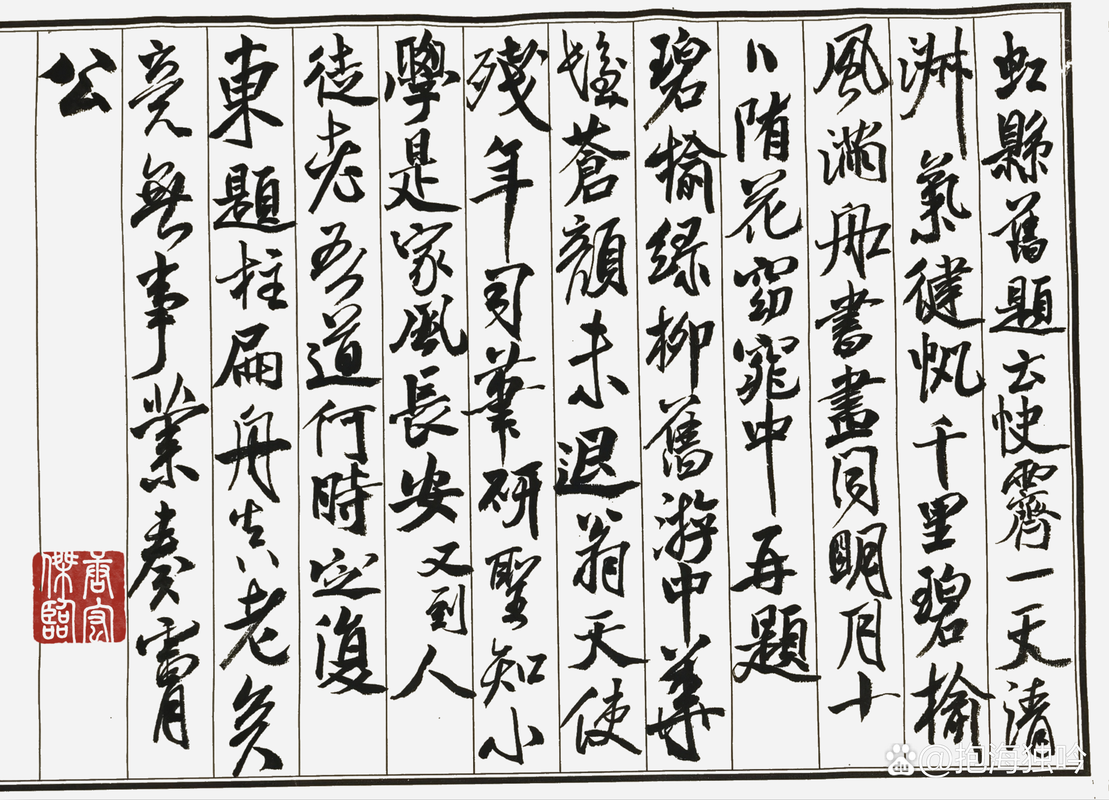 虹縣舊題云快霽一天清
淑氣健帆千里碧榆
風滿舡書畫同明月十
八隋花窈窕中再題
碧榆綠柳舊游中華
髮蒼顏未退翁天使
殘年司筆研聖知小
學是家風長安又到人
徒老吾道何時定復
東題柱扁舟真老矣
竟無事業奏膚
公
唐
傑臨
@抱海独吟